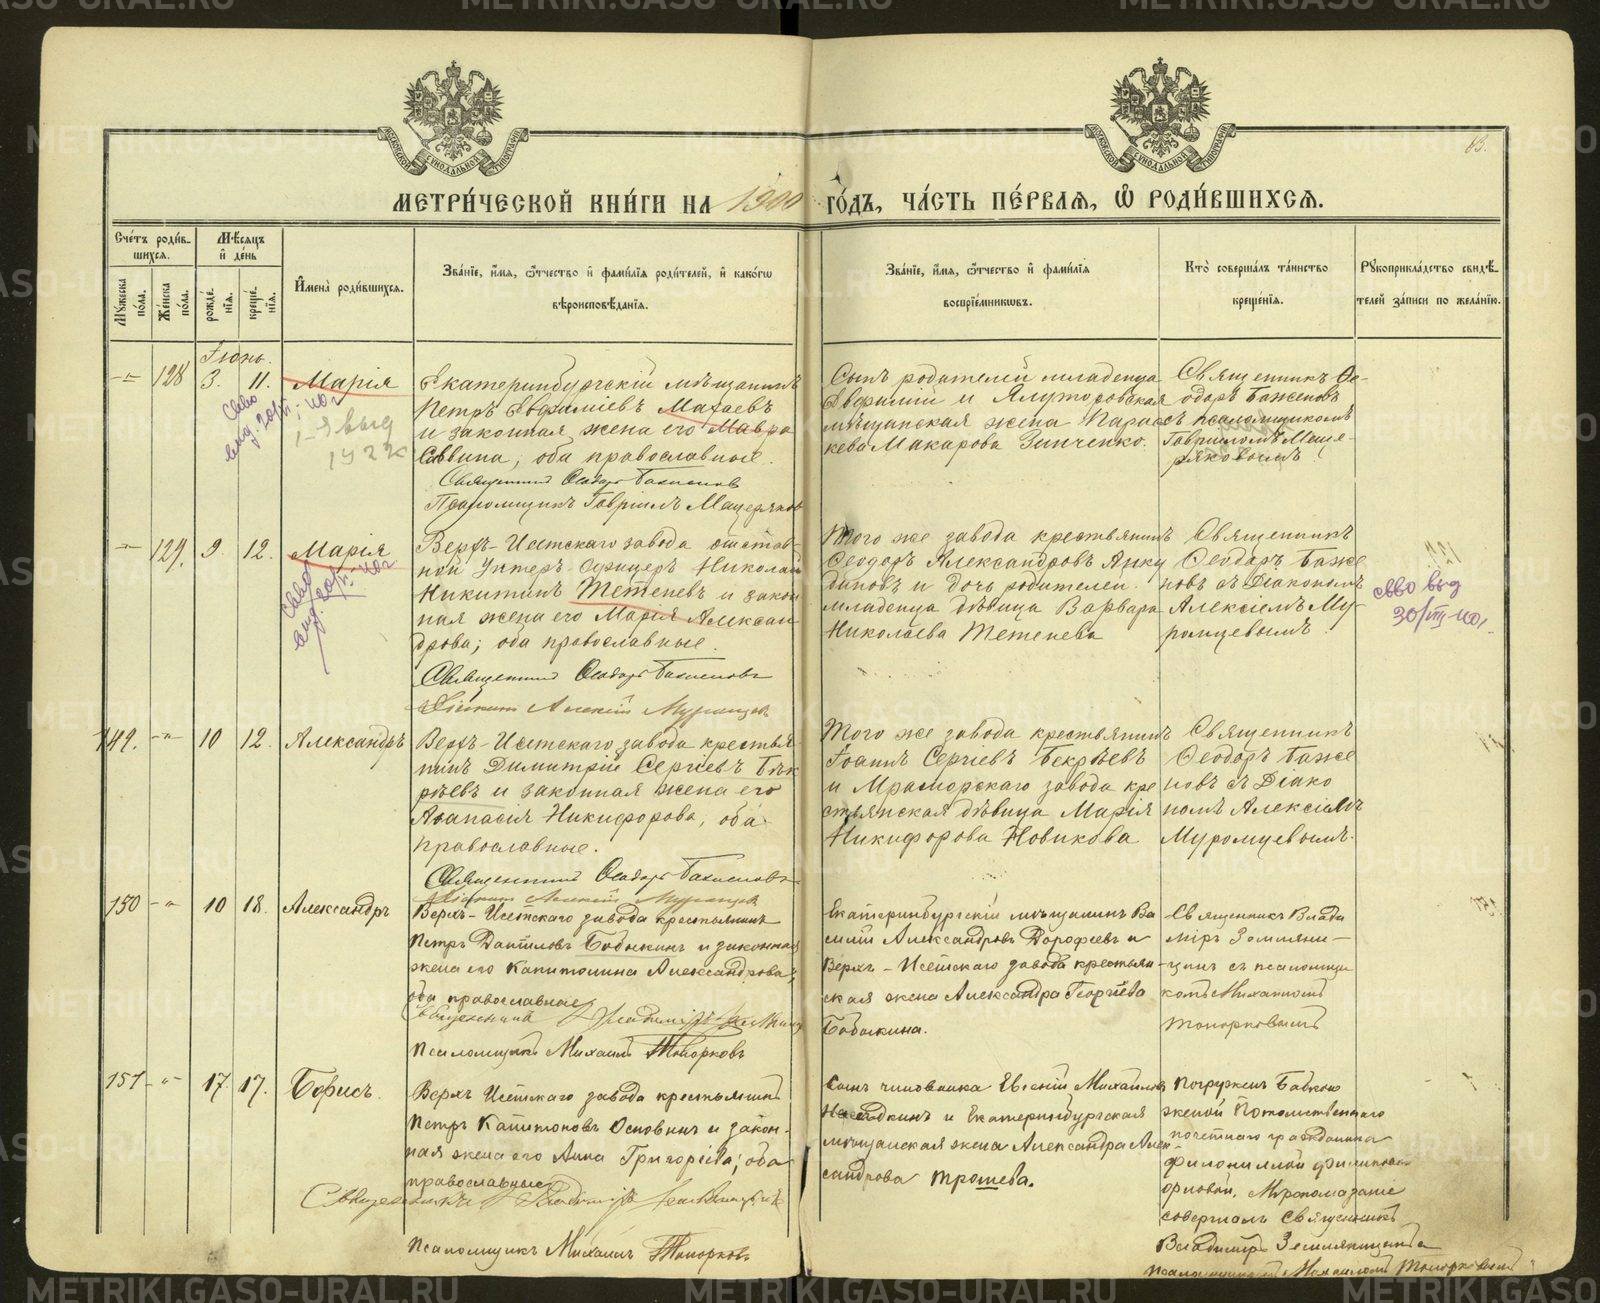 63.
МЕТРИ́ЧЕСКОЙ КНИ́ГИ НА 1900 ГО́ДЪ, ЧА́СТЬ ПЕ́РВАЯ, Ѡ РОДИ́ВШИХСЯ.
Сче́тъ роди́вшихся.
Мꙋ́жеска по́ла.
Же́нска по́ла.
Мѣ́сяцъ и҆ де́нь
рожде́нїѧ.
креще́нїѧ.
И҆мена̀ роди́вшихся.
Зва́нїе, и҆́мѧ, ѻ҆́тчество и҆ фами́лїѧ роди́телей, и҆ како́гѡ
вѣроисповѣ́данїѧ.
Зва́нїе, и҆́мѧ, ѻ҆́тчество и҆ фами́лїѧ
воспрїе́мникѡвъ.
Кто̀ соверша́лъ та́инство
креще́нїѧ.
Рꙋкоприкла́дство свидѣ́-
телей за́писи по жела́нїю.
Іюнь.
128 3. 11. Марія
Екатеринбургскій мѣщанинъ
Петръ Евфиміевъ Махаевъ
и законная жена его Мавра
Саввина, оба православные.
Священникъ Ѳеодоръ Баженовъ
Псаломщикъ Гавріилъ Мещеряковъ
Сынъ родителей младенца
Евфимій и Ялуторовская
мѣщанская жена Параске-
кева Макарова Зинченко.
Священникъ Ѳе-
одоръ Баженовъ
съ псаломщикомъ
Гавріиломъ Меще-
ряковымъ.
129. 9. 12. Марія
Верхъ-Исетскаго завода отстав-
ной Унтеръ-Офицеръ Николай
Никитинъ Тетеневъ и закон-
ная жена его Марія Алексан-
дрова; оба православные.
Священникъ Ѳеодоръ Баженовъ
Діаконъ Алексій Муромцевъ
Того же завода крестьянинъ
Ѳеодоръ Александровъ Анку
диновъ и дочь родителей
младенца дѣвица Варвара
Николаева Тетенева
Священникъ
Ѳеодоръ Баже
новъ съ Діакономъ
Алексіемъ Му-
ромцевымъ.
149. 10 12. Александръ
Верхъ-Исетскаго завода крестья-
нинъ Димитрій Сергіевъ Бек
рѣевъ и законная жена его
Аѳанасія Никифорова, оба
православные.
Священникъ Ѳеодоръ Баженовъ
Діаконъ Алексій Муромцевъ
Того же завода крестьянинъ
Іоаннъ Сергіевъ Бекрѣевъ
и Мраморскаго завода кре
стьянская дѣвица Марія
Никифорова Новикова
Священникъ
Ѳеодоръ Баже
новъ съ Діако
номъ Алексіемъ
Муромцевымъ.
150 10 18. Александръ
Верхъ-Исетскаго завода крестьянинъ
Петръ Даниловъ Бобыкинъ и законная
жена его Капитолина Александрова;
оба православные.
Священникъ Владиміръ Земляницынъ
Псаломщикъ Михаилъ Топорковъ
Екатеринбургскій мѣщанинъ Ва
силій Александровъ Дорофеевъ и
Верхъ-Исетскаго завода крестьян-
ская жена Александра Георгіева
Бобыкина.
Священникъ Влади
міръ Земляни-
цынъ съ псаломщи
комъ Михаиломъ
Топорковымъ
151 17. 17. Борисъ.
Верхъ Исетскаго завода крестьянинъ
Петръ Капитоновъ Основинъ и закон-
ная жена его Анна Григорьева; оба
православные.
Священникъ Владиміръ Земляницынъ
Псаломщикъ Михаилъ Топорковъ
Сынъ чиновника Евгеній Михайловъ
Наседкинъ и Екатеринбургская
мѣщанская жена Александра Алек-
сандрова Трошева.
Погруженъ бабкою
женой Потомственнаго
почетнаго гражданина
Миропомазаніе
совершалъ Священникъ
Владиміръ Земляницынъ съ
псаломщикомъ Михаиломъ Топорковымъ
св-во выд
30/VIII-40г.
METRIKI.GASO-URAL.RU